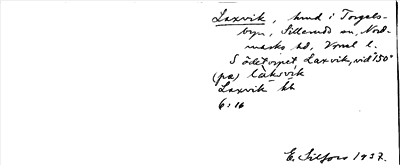 Laxvik, hmd i Torgels-
byn, Sillerud sn, Nord-
marks hd, Vrml l.
S ödetorpet Laxvik, vid "150"
(pa) làksvik
Laxvik kk
6:16
E. Silfors 1937.